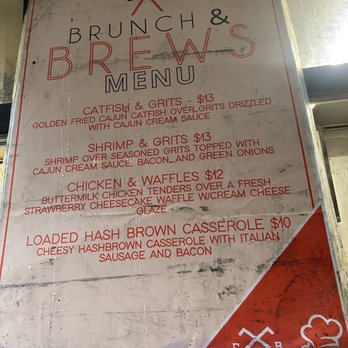 BRUNCH &
BREWS
MENU
CATFISH & GRITS - $13
GOLDEN FRIED CAJUN CATFISH OVER GRITS DRIZZLED
WITH CAJUN CREAM SAUCE
SHRIMP & GRITS $13
SHRIMP OVER SEASONED GRITS TOPPED WITH
CAJUN CREAM SAUCE, BACON, AND GREEN ONIONS
CHICKEN & WAFFLES $12
BUTTERMILK CHICKEN TENDERS OVER A FRESH
STRAWBERRY CHEESECAKE WAFFLE W/CREAM CHEESE
GLAZE
LOADED HASH BROWN CASSEROLE $10
CHEESY HASHBROWN CASSEROLE WITH ITALIAN
SAUSAGE AND BACON